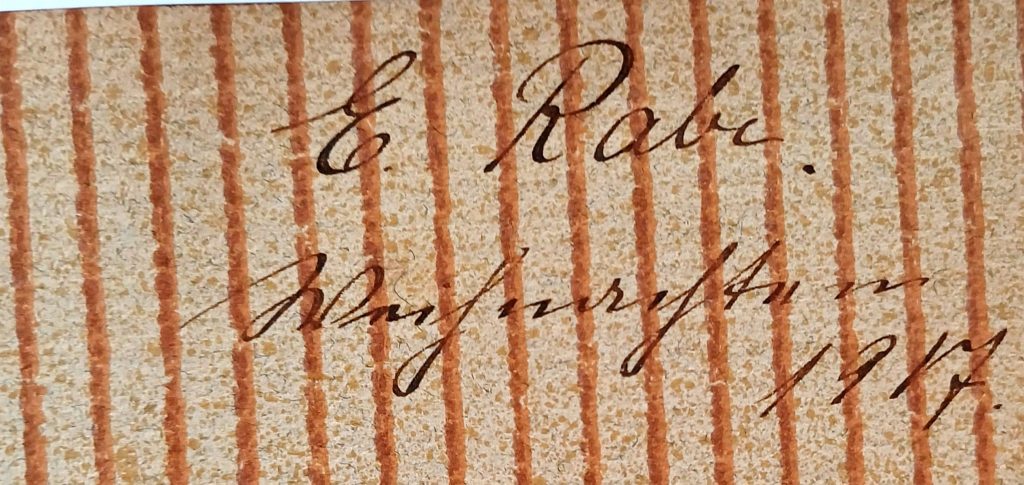 E. Rabe.
Weihnachten
1917.